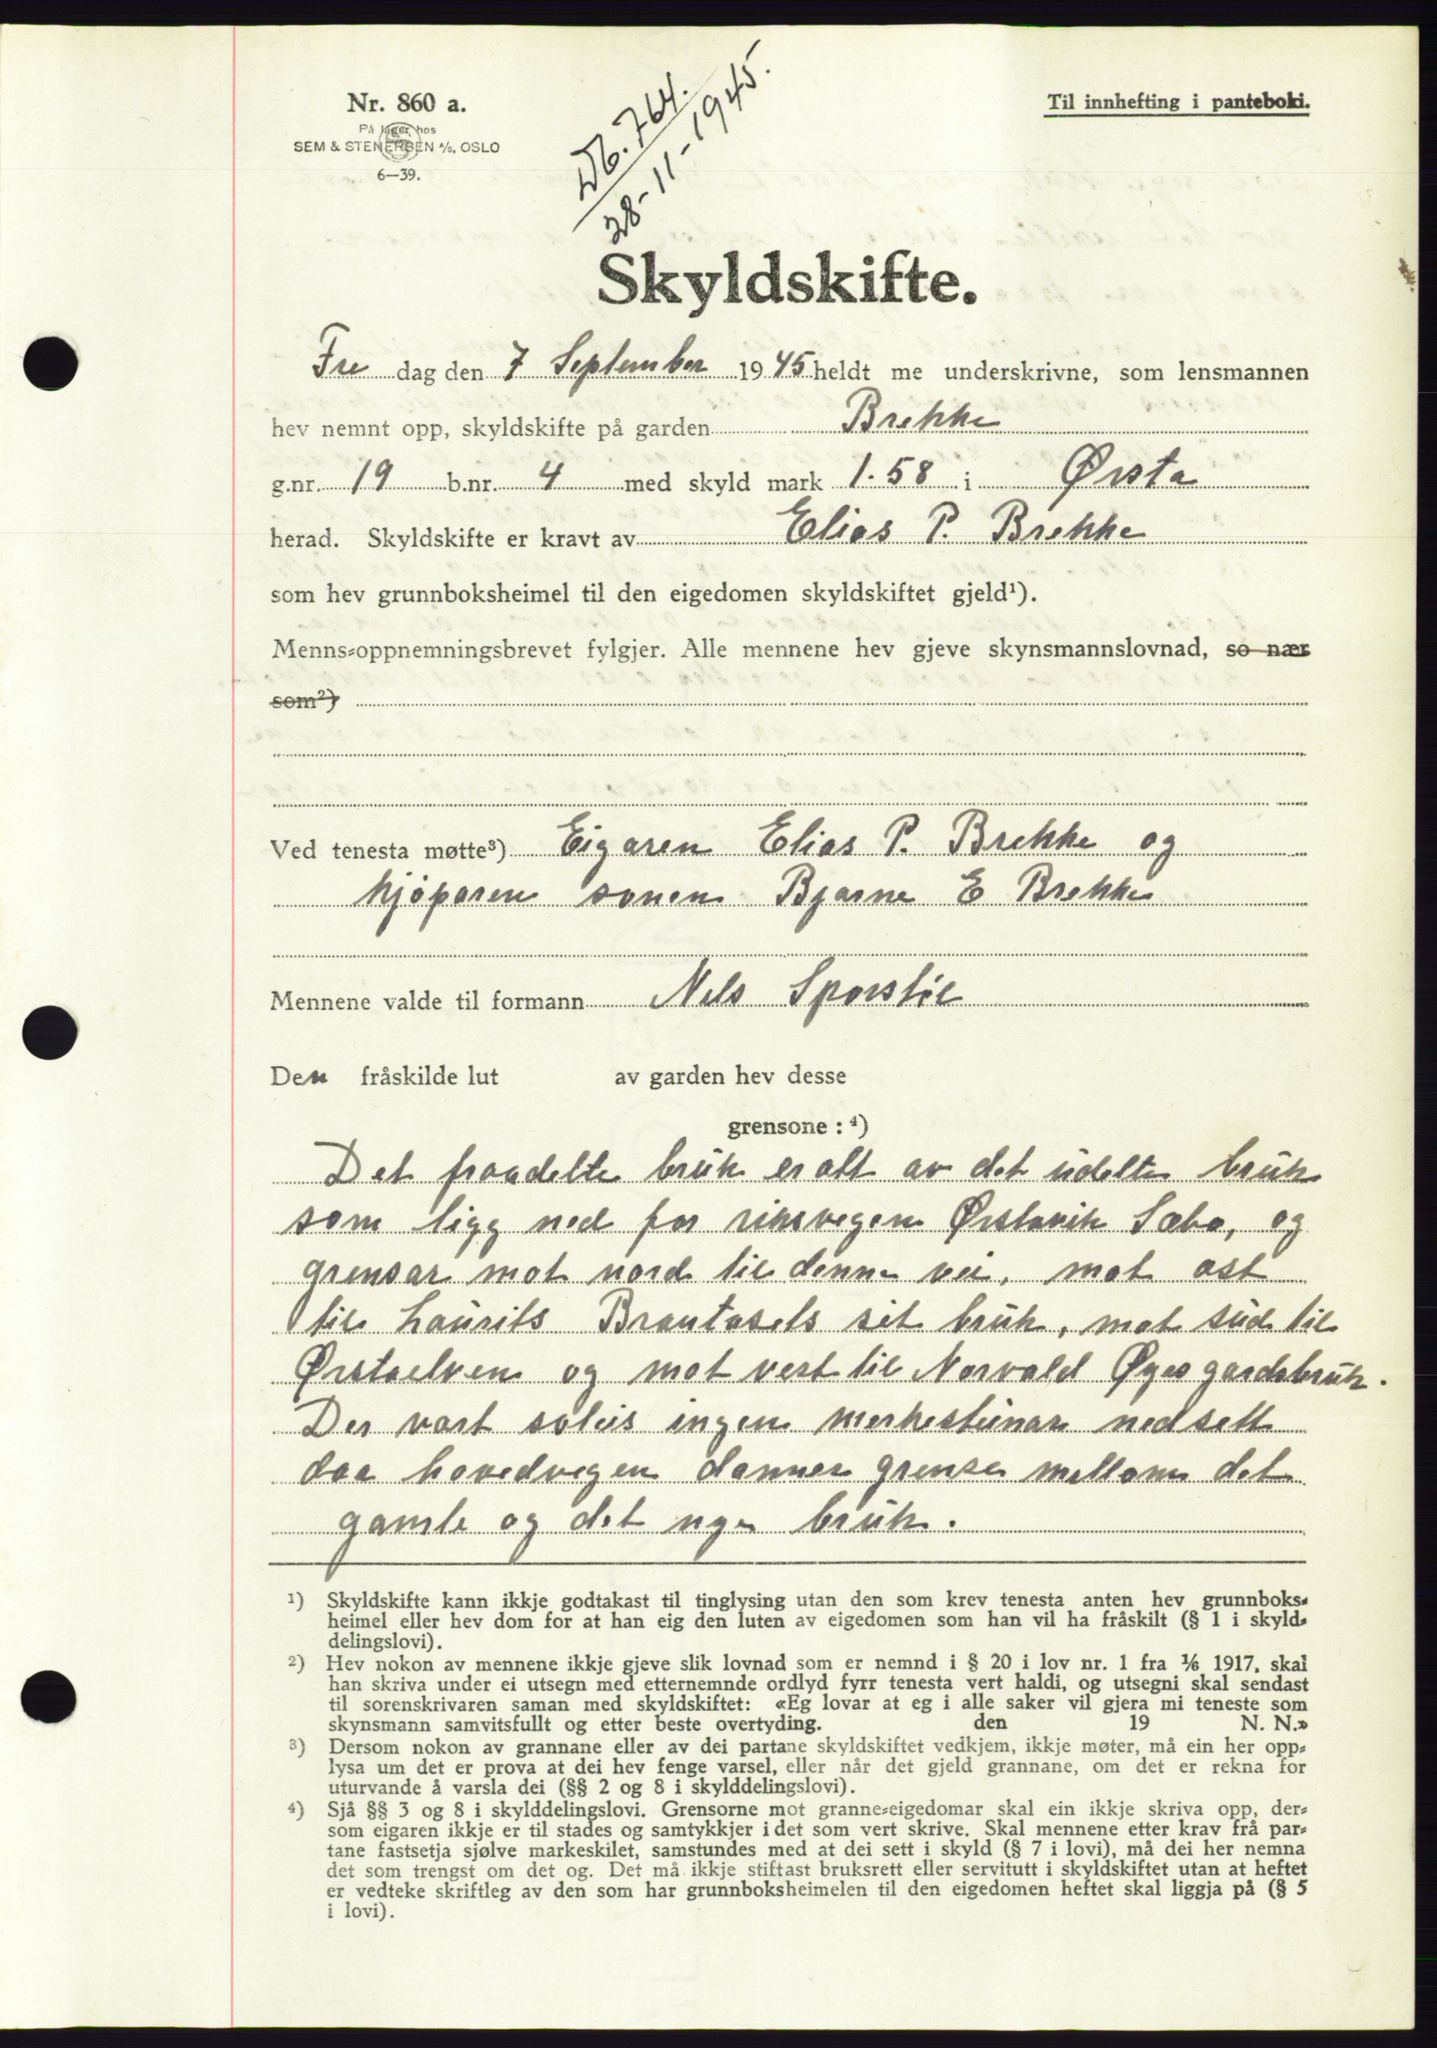 Nr. 860 a.
På lager hos
SEM & STENERSEN A/S, OSLO
6—39.
Db. 764.
28-11-1945.
Til innhefting i panteboki.
Skyldskifte.
Fre dag den 7 September 1945 heldt me underskrivne, som lensmannen
hev nemnt opp, skyldskifte på garden Brekke
g.nr. 19 b.nr. 4 med skyld mark 1.58 i Ørsta
herad. Skyldskifte er kravt av Elias P. Brekke
som hev grunnboksheimel til den eigedomen skyldskiftet gjeld¹).
Menns-oppnemningsbrevet fylgjer. Alle mennene hev gjeve skynsmannslovnad, so nær
som²)
Ved tenesta møtte³) Eigaren Elias P. Brekke og
kjøparen sonen Bjarne E Brekke
Mennene valde til formann Nils Sporstøl
Den fråskilde lut av garden hev desse
grensone : ⁴)
Det fraadelte bruk er alt av det udelte bruk
som ligg ned for riksvegen Ørstavik Sæbo, og
grensar mot nord til denne vei, mot ast
til Laurits Brautasets sit bruk, mot sud til
Ørstaelven og mot vest til Norvald Øyes gardsbruk.
Der vart soleis ingen merkesteinar nedsett
daa hovedvegen danner grense mellom det
gamle og det nye bruk.
¹) Skyldskifte kann ikkje godtakast til tinglysing utan den som krev tenesta anten hev grunnboks-
heimel eller hev dom for at han eig den luten av eigedomen som han vil ha fråskilt (§ 1 i skyld-
delingslovi).
²) Hev nokon av mennene ikkje gjeve slik lovnad som er nemnd i § 20 i lov nr. 1 fra 1/6 1917, skal
han skriva under ei utsegn med etternemnde ordlyd fyrr tenesta vert haldi, og utsegni skal sendast
til sorenskrivaren saman med skyldskiftet: «Eg lovar at eg i alle saker vil gjera mi teneste som
skynsmann samvitsfullt og etter beste overtyding. den 19 N. N.»
³) Dersom nokon av grannane eller av dei partane skyldskiftet vedkjem, ikkje møter, må ein her opp-
lysa um det er prova at dei hev fenge varsel, eller når det gjeld grannane, om det er rekna for
uturvande å varsla dei (§§ 2 og 8 i skylddelingslovi).
⁴) Sjå §§ 3 og 8 i skylddelingslovi. Grensorne mot granne-eigedomar skal ein ikkje skriva opp, der-
som eigaren ikkje er til stades og samtykkjer i det som vert skrive. Skal mennene etter krav frå par-
tane fastsetja sjølve markeskilet, samstundes med at dei sett i skyld (§ 7 i lovi), må dei her nemna
det som trengst om det og. Det må ikkje stiftast bruksrett eller servitutt i skyldskiftet utan at heftet
er vedteke skriftleg av den som har grunnboksheimelen til den eigedomen heftet skal liggja på (§ 5
i lovi).